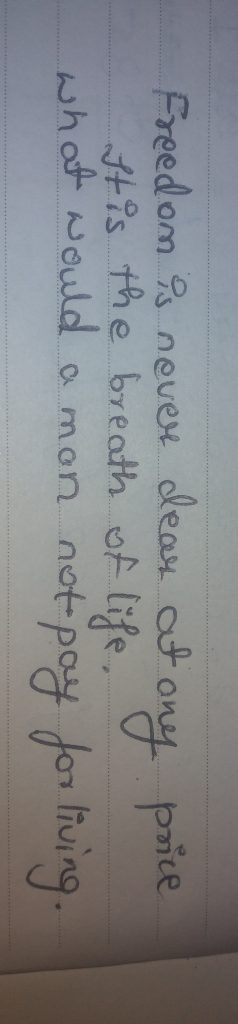 Freedom is never dear at any price
It is the breath of life.
what would a man not pay for living.